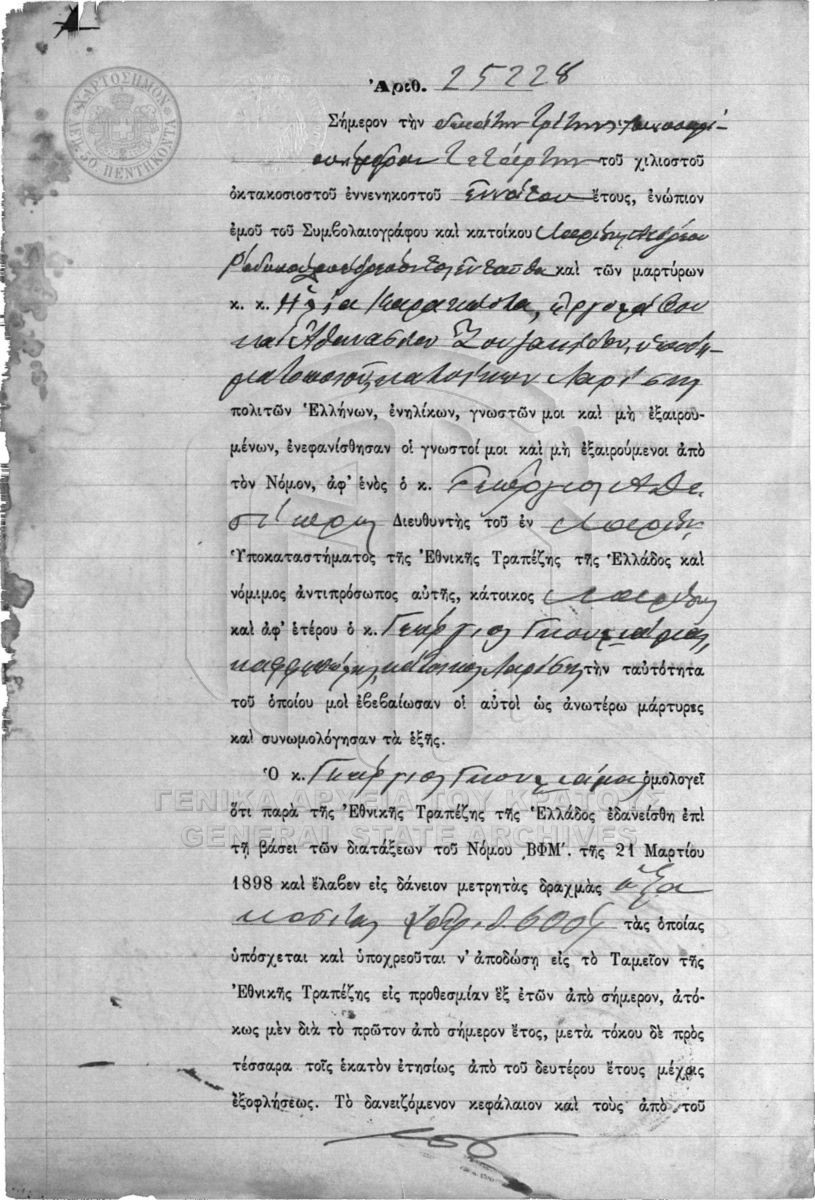 ΧΑΡΤΟΣΗΜΟΝ
ΛΕΠ. 50. ΠΕΝΤΗΚΟΝΤΑ
Ἀριθ. 25228
Σήμερον τὴν δεκάτην τρίτην
ἡμέραν Τετάρτην τοῦ χιλιοστοῦ
ὀκτακοσιοστοῦ ἐννενηκοστοῦ ἐννάτου ἔτους, ἐνώπιον
ἐμοῦ τοῦ Συμβολαιογράφου καὶ κατοίκου Λαρίσης
ἐνταῦθα καὶ τῶν μαρτύρων
κ. κ. Ἠλία
καὶ Ἀθανασίου
κατοίκων Λαρίσης
πολιτῶν Ἑλλήνων, ἐνηλίκων, γνωστῶν μοι καὶ μὴ ἐξαιρου-
μένων, ἐνεφανίσθησαν οἱ γνωστοί μοι καὶ μὴ ἐξαιρούμενοι ἀπὸ
τὸν Νόμον, ἀφ' ἑνὸς ὁ κ. Γεώργιος
Διευθυντὴς τοῦ ἐν Λαρίσῃ
Ὑποκαταστήματος τῆς Ἐθνικῆς Τραπέζης τῆς Ἑλλάδος καὶ
νόμιμος ἀντιπρόσωπος αὐτῆς, κάτοικος Λαρίσης
καὶ ἀφ' ἑτέρου ὁ κ. Γεώργιος
κάτοικος Λαρίσης τὴν ταὐτότητα
τοῦ ὁποίου μοὶ ἐβεβαίωσαν οἱ αὐτοὶ ὡς ἀνωτέρω μάρτυρες
καὶ συνωμολόγησαν τὰ ἑξῆς.
Ὁ κ. Γεώργιος ὁμολογεῖ
ΓΕΝΙΚΑ ΑΡΧΕΙΑ ΤΟΥ ΚΡΑΤΟΥΣ
ὅτι παρὰ τῆς Ἐθνικῆς Τραπέζης τῆς Ἑλλάδος ἐδανείσθη ἐπὶ
GENERAL STATE ARCHIVES
τῇ βάσει τῶν διατάξεων τοῦ Νόμου ͵ΒΦΜʹ. τῆς 21 Μαρτίου
1898 καὶ ἔλαβεν εἰς δάνειον μετρητὰς δραχμὰς ἑξα
κοσίας 600 τὰς ὁποίας
ὑπόσχεται καὶ ὑποχρεοῦται ν' ἀποδώσῃ εἰς τὸ Ταμεῖον τῆς
Ἐθνικῆς Τραπέζης εἰς προθεσμίαν ἓξ ἐτῶν ἀπὸ σήμερον, ἀτό-
κως μὲν διὰ τὸ πρῶτον ἀπὸ σήμερον ἔτος, μετὰ τόκου δὲ πρὸς
τέσσαρα τοῖς ἑκατὸν ἐτησίως ἀπὸ τοῦ δευτέρου ἔτους μέχρις
ἐξοφλήσεως. Τὸ δανειζόμενον κεφάλαιον καὶ τοὺς ἀπὸ τοῦ